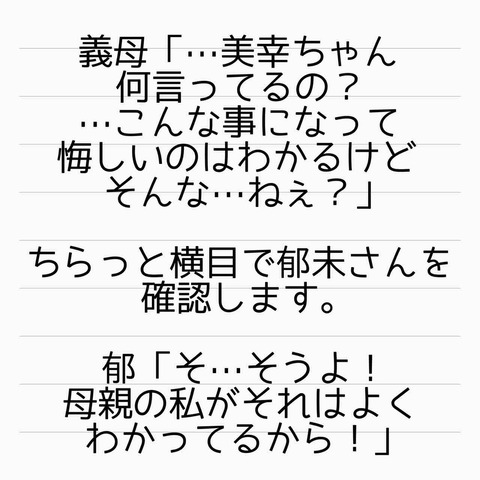 義母「…美幸ちゃん
何言ってるの？
…こんな事になって
悔しいのはわかるけど
そんな…ねぇ？」
ちらっと横目で郁未さんを
確認します。
郁「そ…そうよ！
母親の私がそれはよく
わかってるから！」